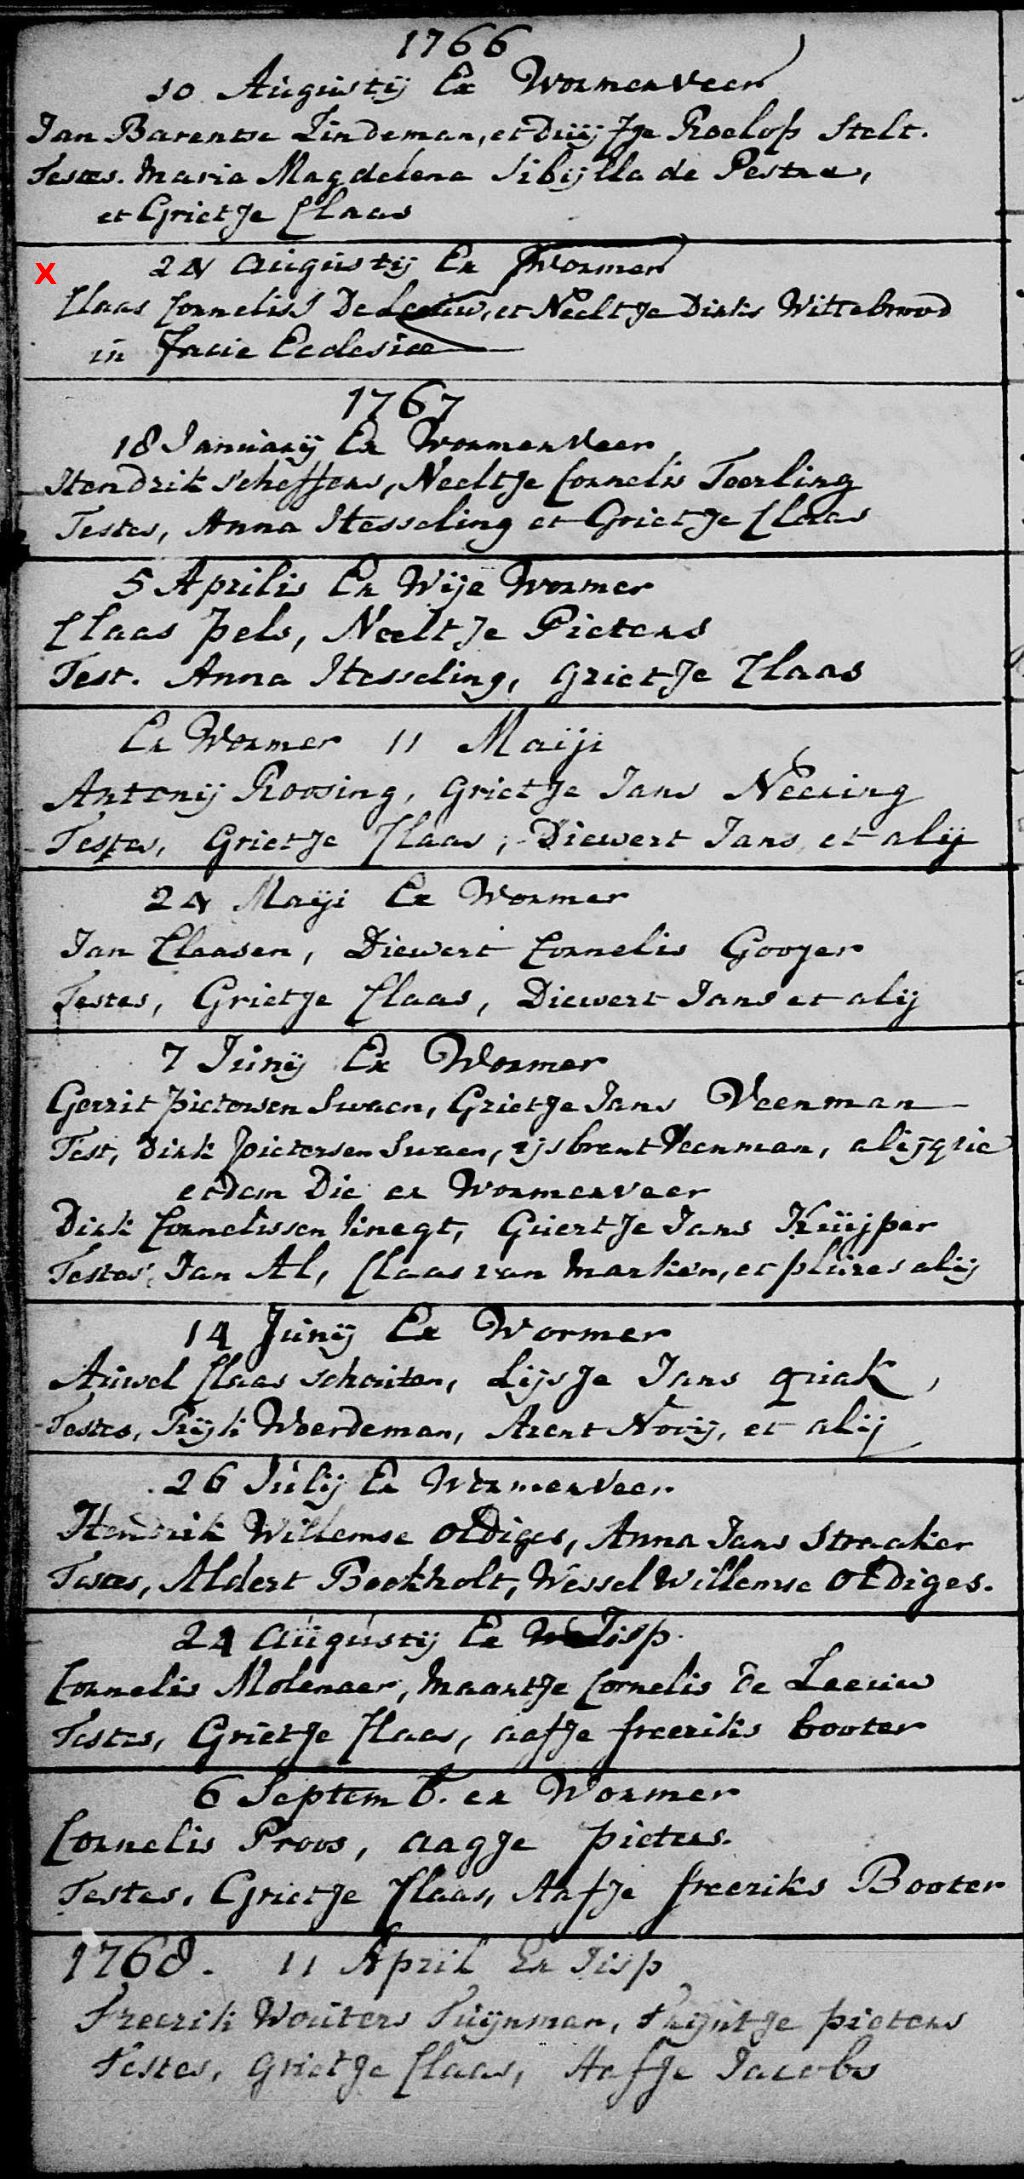 1766
10 Augustij Ex Wormerveer
Jan Barentse Lindeman, et Duijtje Roelofs Stelt.
Testes. Maria Magdalena Sibijlla de Pestre,
et Grietje Claas
X
24 Augustij Ex Wormer
Claas Cornelisz De Leeuw, et Neeltje Dirks Wittebrood
in Facie Ecclesiae
1767
18 Januarij Ex Wormerveer
Hendrik Scheffers, Neeltje Cornelis Teerling
Testes, Anna Hesseling et Grietje Claas
5 Aprilis Ex Wije Wormer
Claas Pels, Neeltje Pieters
Test. Anna Hesseling, Grietje Claas
Ex Wormer 11 Maiji
Antonij Roosing, Grietje Jans Neering
Testes, Grietje Claas, Diewert Jans, et alij
24 Maiji Ex Wormer
Jan Claasen, Diewert Cornelis Gooyer
Testes, Grietje Claas, Diewert Jans et alij
7 Junij Ex Wormer
Gerrit Pietersen Swaen, Grietje Jans Veenman
Test, Dirk Pietersen Swaen, ijsbrant Veenman, alijqzie
eodem Die ex Wormerveer
Dirk Cornelissen Knegt, Guertje Jans Kuijper
Testes, Jan Al, Claas van Marken, et plures alij
14 Junij Ex Wormer
Auwel Claas Schouten, Lijsje Jans quak,
Testes, Rijk Woerdeman, Arent Nooij, et alij
26 Julij Ex Wormerveer
Hendrik Willemse Oldiges, Anna Jans Straaker
Testes, Aldert Bookholt, Wessel Willemse Oldiges.
24 Augustij Ex Jisp
Cornelis Molenaer, Maartje Cornelis de Leeuw
Testes, Grietje Claas, aafje freeriks booter
6 Septemb. ex Wormer
Cornelis Proos, aagje Pieters.
Testes, Grietje Claas, Aafje freeriks Booter
1768. 11 April Ex Jisp
Freerik Wouters Tuijnman, Trijntje Pieters
Testes, Grietje Claas, Aafje Jacobs